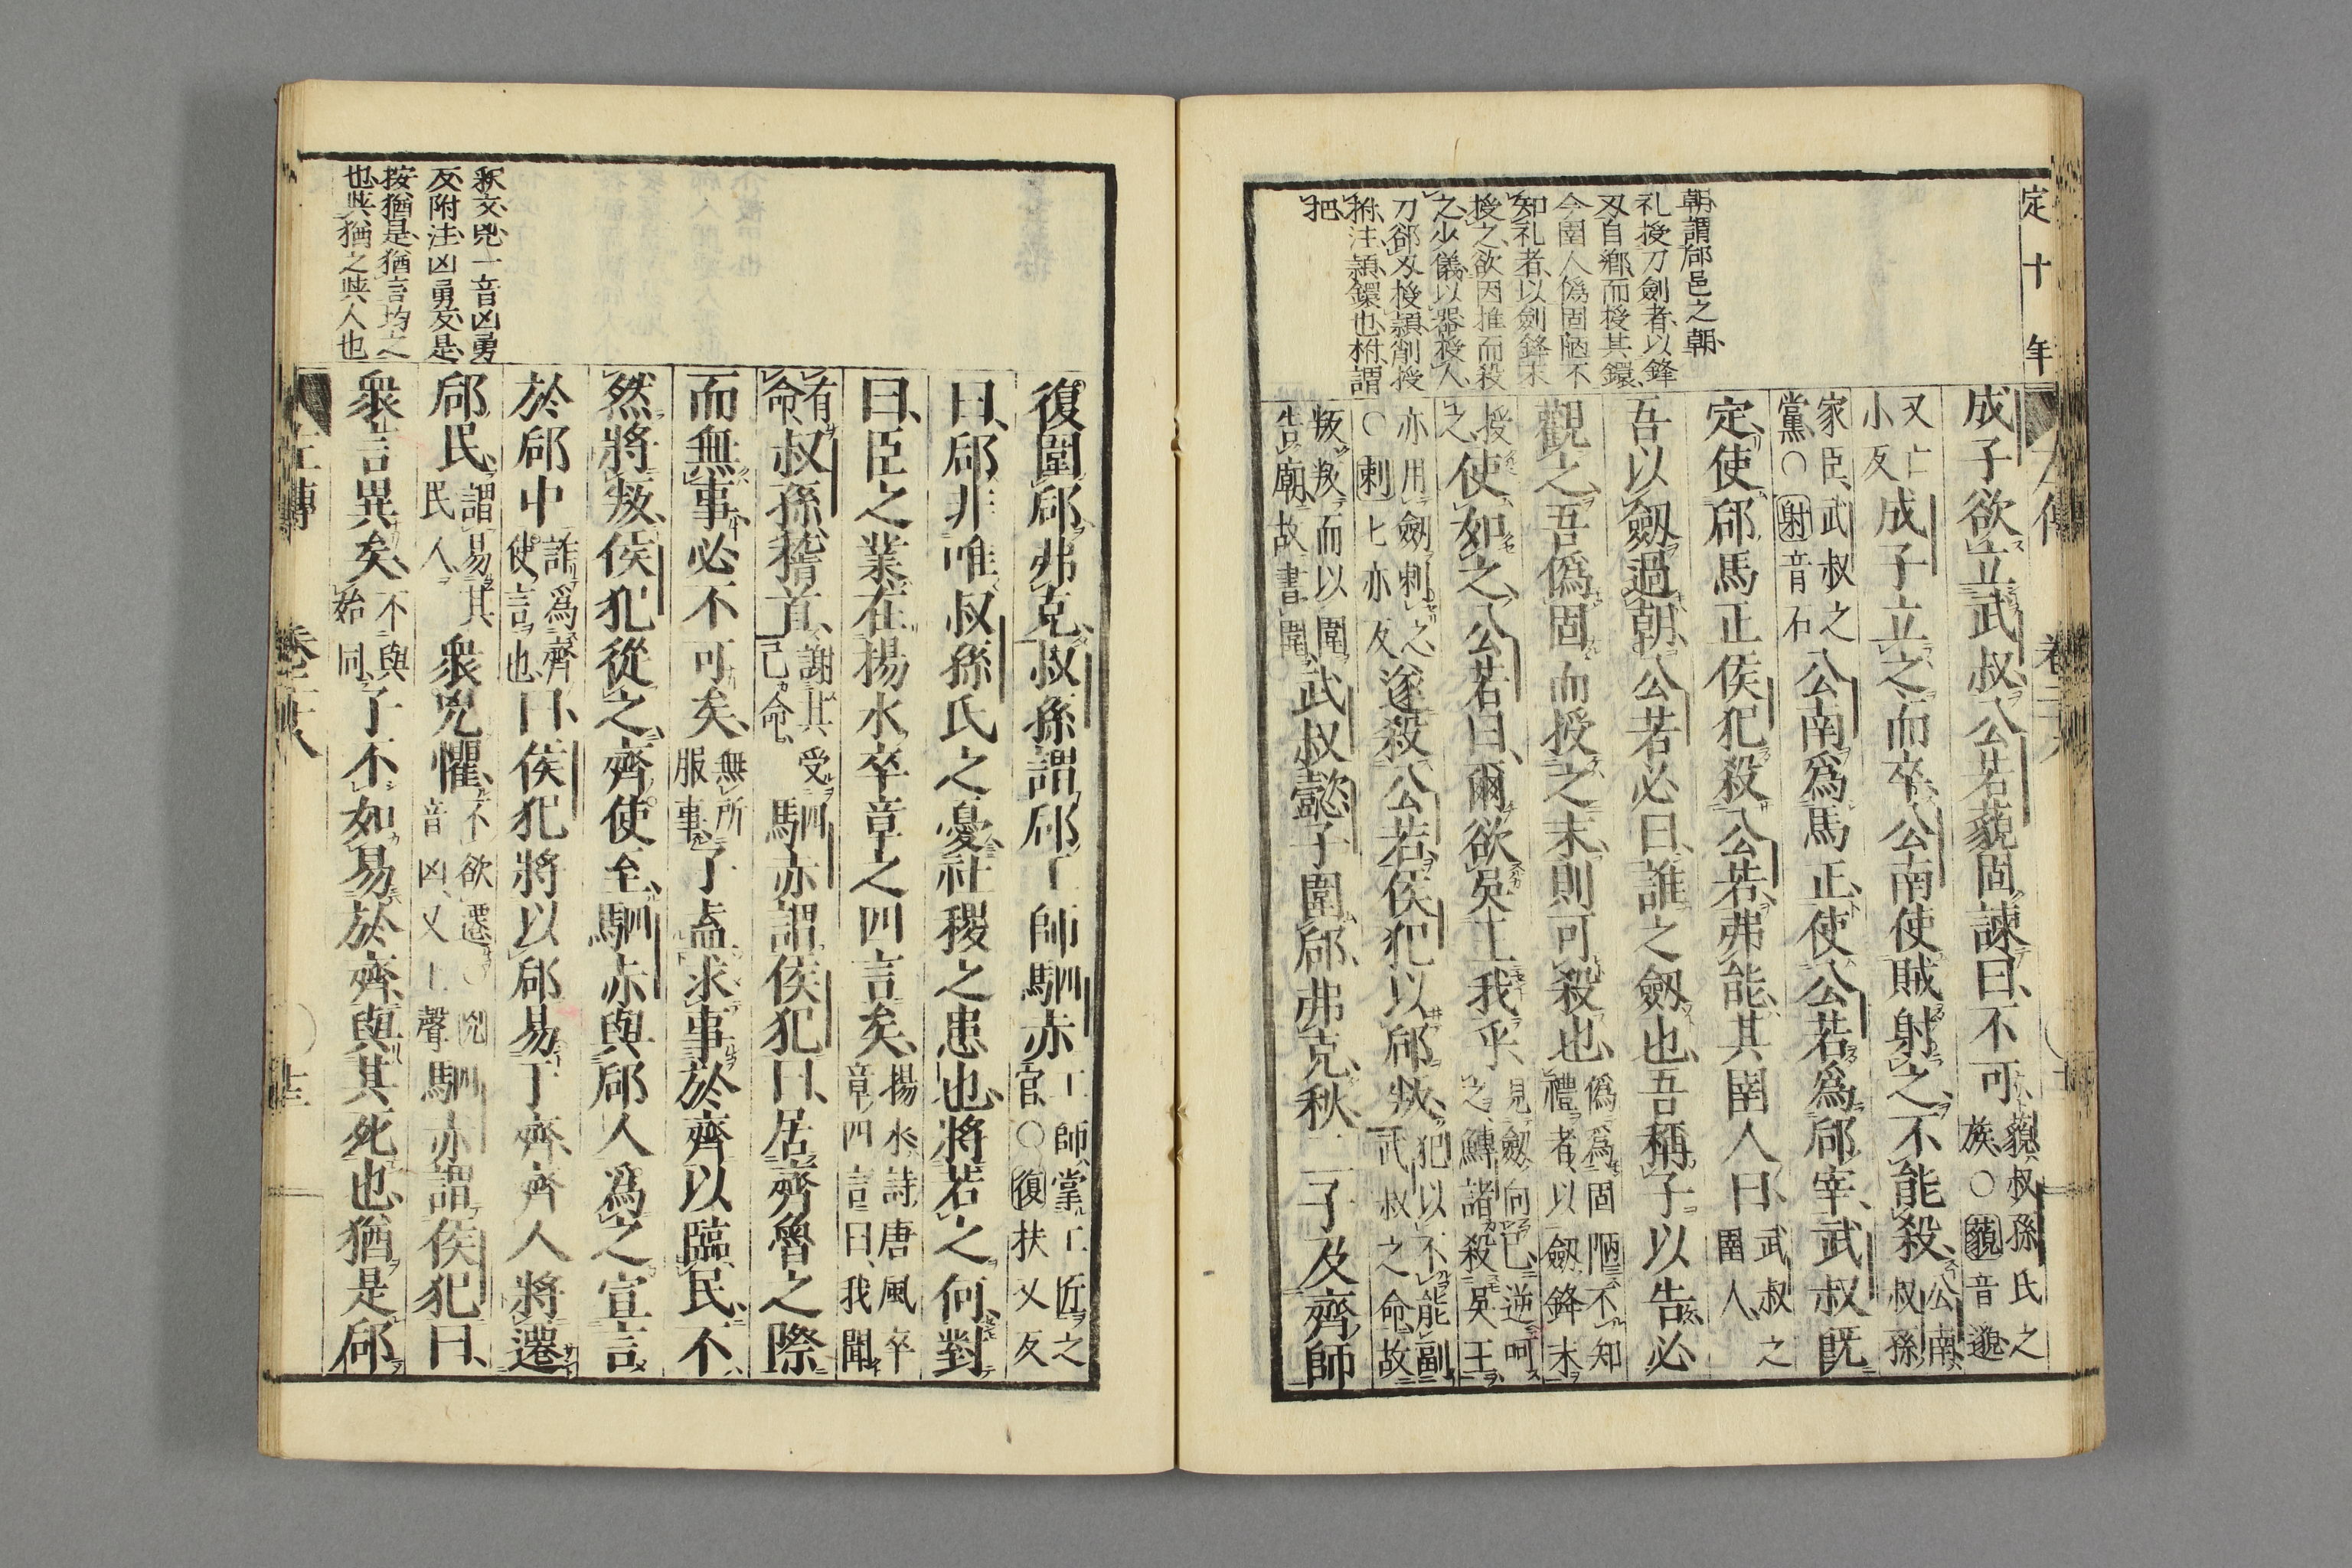 定十年
朝謂郈邑之朝
礼授刀劍者以鋒
刄自鄕而授其鐶
今圉人僞固陋不
知礼者以劍鋒末
授之欲因推而殺
之少儀以器授人
刀郤刄授頴削授
拊注頴鐶也拊謂
把
成子欲立武叔公若藐固諫曰不可藐叔孫氏之族〇藐音邈
又亡小反成子立之而卒公南使賊射之不能殺公南叔孫
家臣武叔之黨〇射音石公南爲馬正使公若爲郈宰武叔既
定使郈馬正侯犯殺公若弗能其圉人曰武叔之圉人
吾以劔過朝公若必曰誰之劔也吾稱子以告必
觀之吾僞固而授之末則可殺也僞爲固陋不知禮者以劔鋒末
授之使如之公若曰爾欲吳王我乎見劔向已逆呵之鱄諸殺吳王
亦用劔刺之〇刺七亦反遂殺公若侯犯以郈叛犯以不能副武叔之命故
叛叛而以圍告廟故書圍武叔懿子圍郈弗克秋二子及齊師
復圍郈弗克叔孫謂郈工師駟赤工師掌工匠之官〇復扶又反
曰郈非唯叔孫氏之憂社稷之患也將若之何對
曰臣之業在揚水卒章之四言矣揚水詩唐風卒章四言曰我聞
有命叔孫稽首謝其受己命駟赤謂侯犯曰居齊魯之際
而無事必不可矣無所服事子盍求事於齊以臨民不
然將叛侯犯從之齊使至駟赤與郈人爲之宣言
於郈中詐爲齊使言也曰侯犯將以郈易于齊齊人將遷
郈民謂易其民人衆兇懼不欲遷〇兇音凶又上聲駟赤謂侯犯曰
衆言異矣不與始同子不如易於齊與其死也猶是郈
釈文兇一音凶勇
反附注凶勇反是
按猶是猶言均之
也與猶之與人也